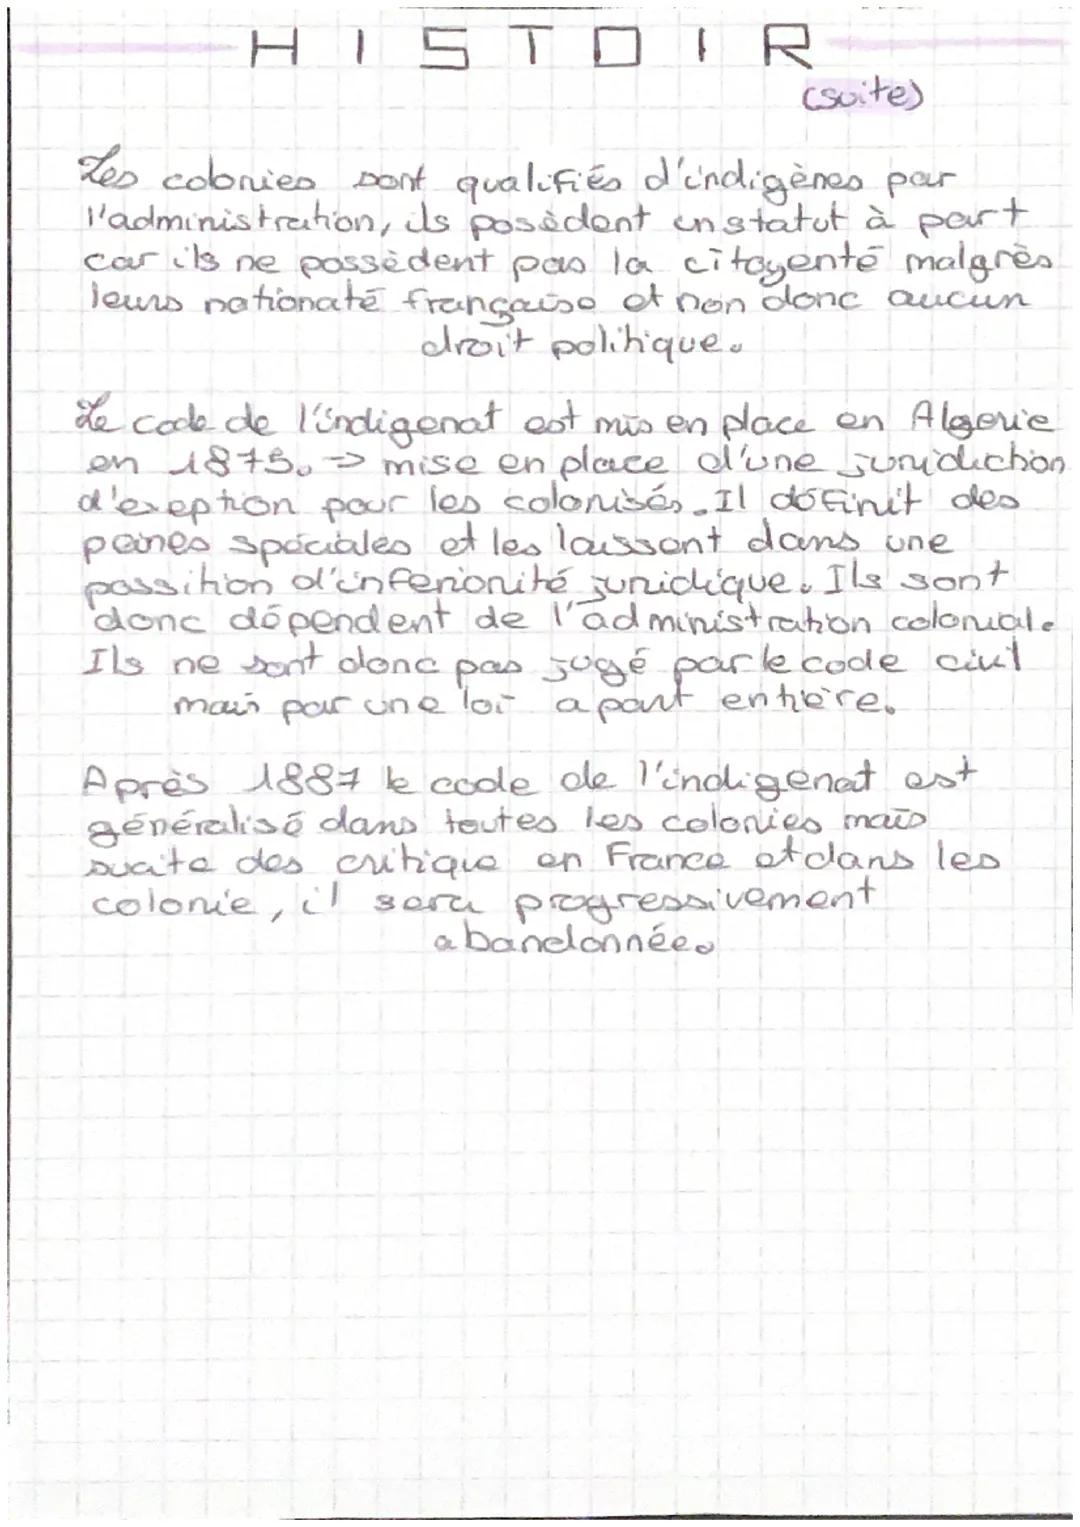 HISTOIR
(suite)
Les colonies sont qualifiés d'indigènes par
l'administration, ils posèdent un statut à part
car ils ne possèdent pas la citoyenté malgrès
leurs nationaté française et non donc aucun
droit politique.
Le code de l'indigenat est mis en place en Algerie
en 1875. → mise en place d'une juridiction
d'exeption pour les colonisés. Il définit des
peines spéciales et les laissent dans une
possition d'inferiorité juridique. Ils sont
donc dépendent de l'administration colonial.
Ils ne sont donc pas jugé par le code civil
mais par une loi a part entière.
Après 1887 le code de l'indigenat est
généralisé dans toutes les colonies mais
suaite des critique en France et dans les
colonie, il sera progressivement
abandonnée.